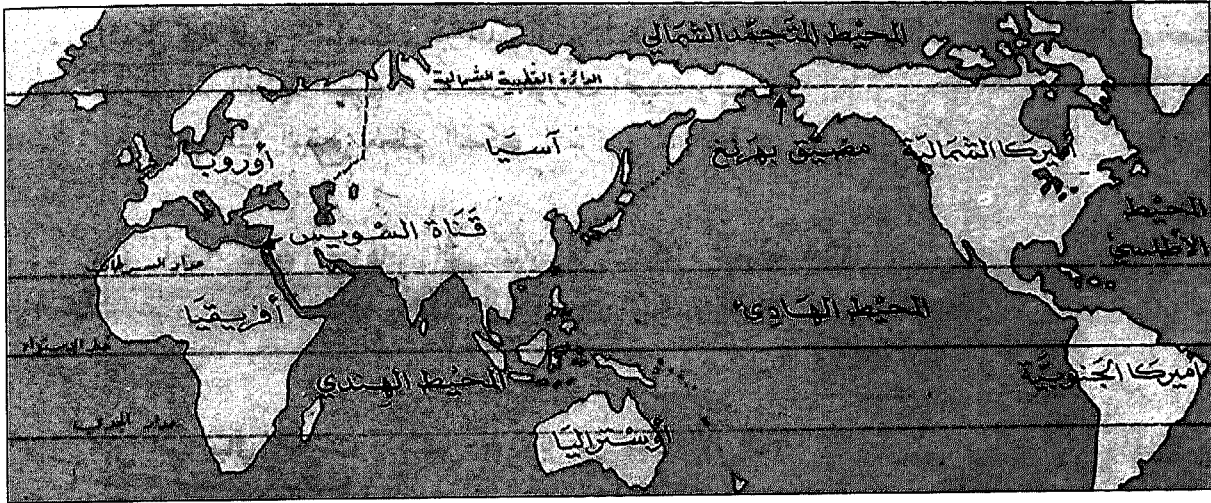 المحيط المتجمد الشمالي
الدائرة القطبية الشمالية
آسيَا
أوروبا
مضيق بهرنغ
أميركا الشمالية
المحيط
الأطلسي
قَنَاة السّويس
مدار السرطان
أفريقيَا
المحيط الهَادي
خط الاستواء
المحيط الهندي
أميركا الجنوبيَّة
مدار الجدي
أوستراليا